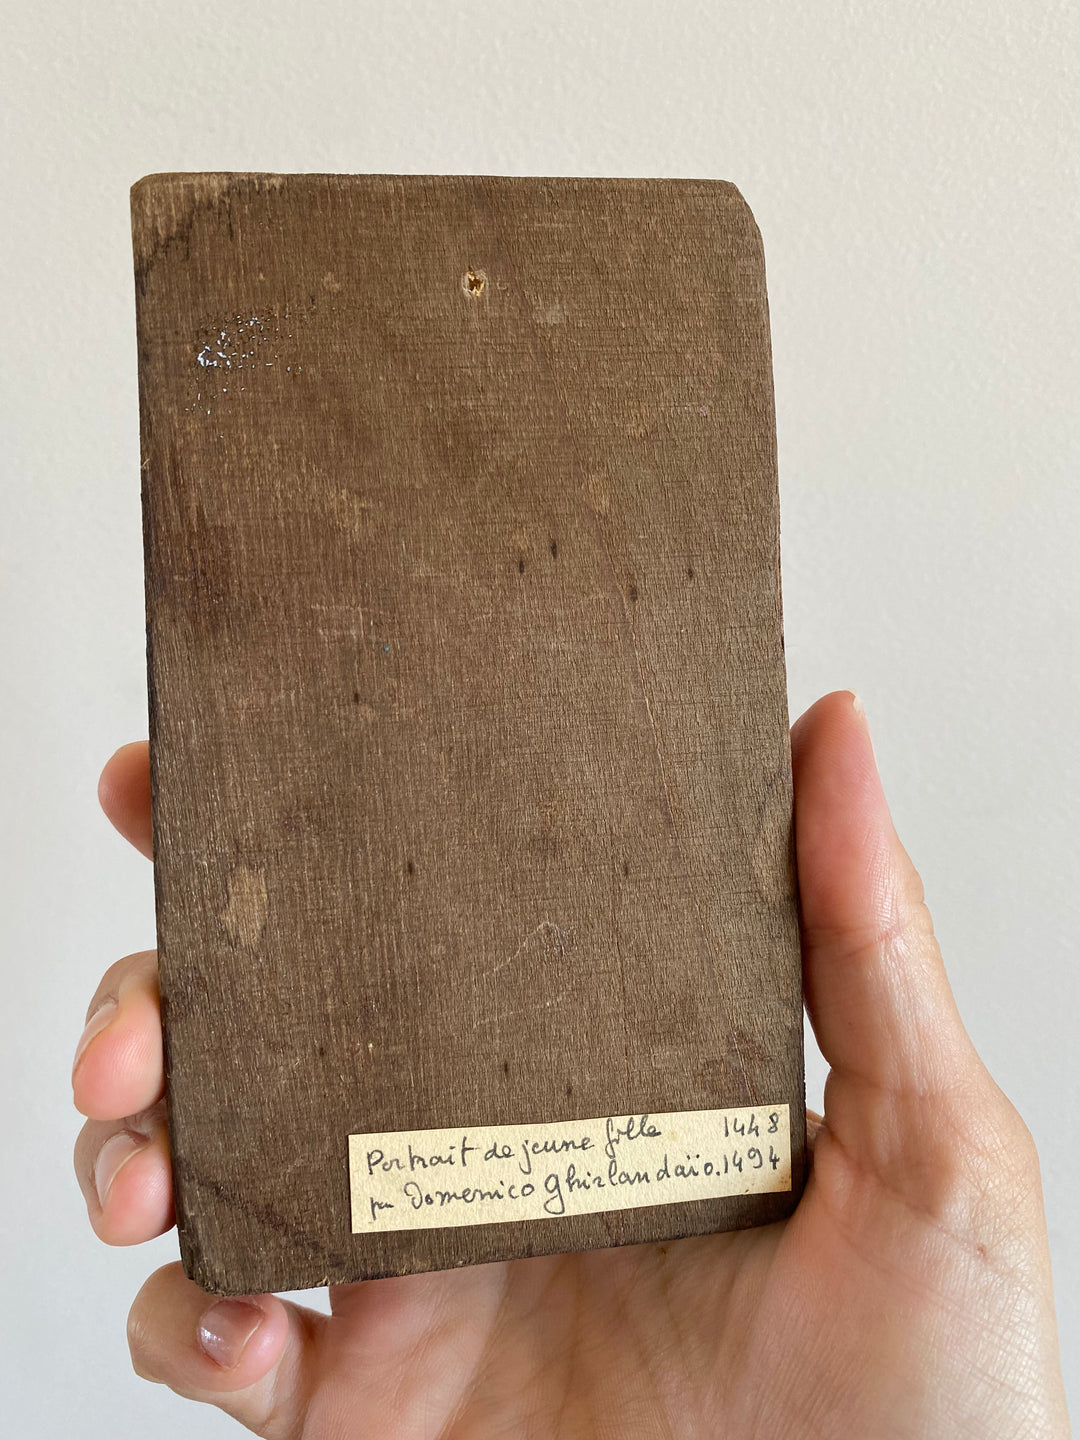 Portrait de jeune fille 1448
par Domenico Ghirlandaïo. 1494